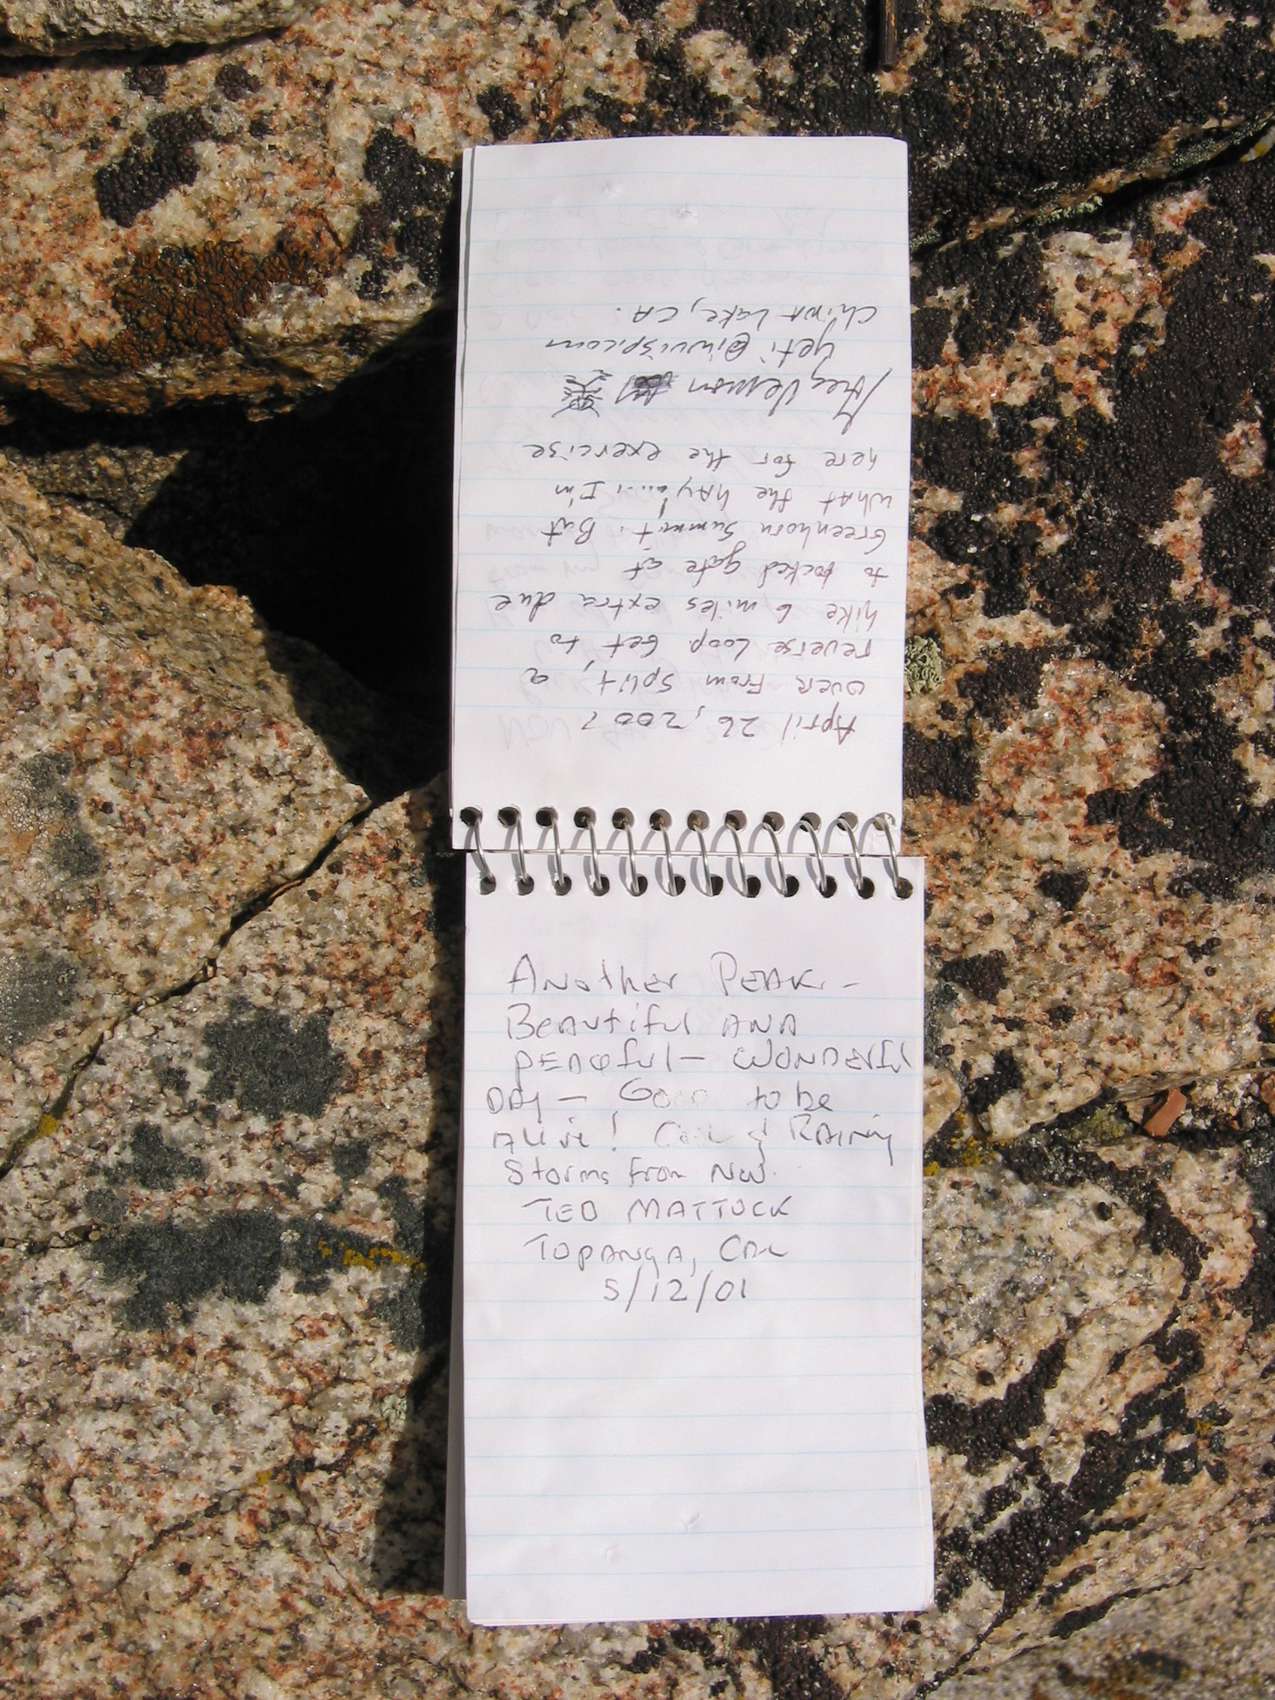 April 26, 2007
over From Split, a
reverse Loop. Get to
hike 6 miles extra due
to locked gate at
Greenhorn Summit. But
what the hay!.... I'm
here for the exercise
Vernon
yeti@iwvisp.com
China Lake, CA.
Another Peak -
Beautiful AND
PEACEful - WONDERful
DAy - Good to be
Alive! Cool & RAINy
Storms from NW.
TED MATTOCK
TOPANGA, CAL
5/12/01